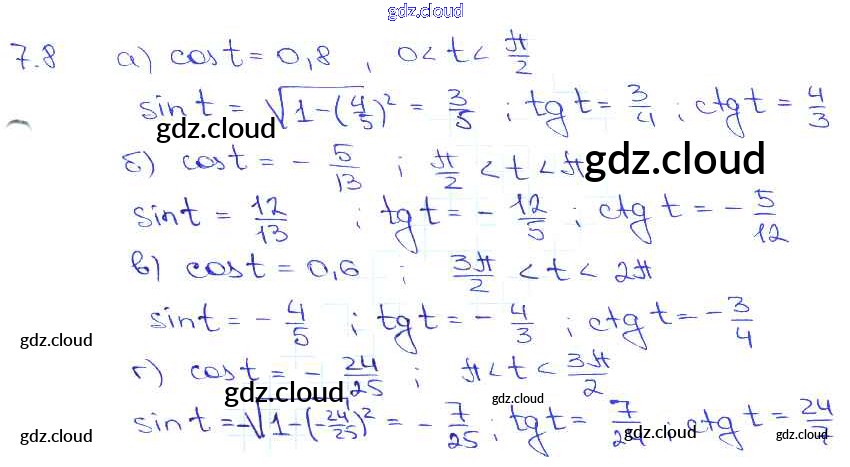 gdz.cloud
7.8 а) cos t = 0,8 , 0 < t < π/2
sin t = √(1 - (4/5)²) = 3/5 ; tg t = 3/4 ; ctg t = 4/3
gdz.cloud
б) cos t = - 5/13 ; π/2 < t < π
gdz.cloud
sin t = 12/13 ; tg t = - 12/5 ; ctg t = - 5/12
в) cos t = 0,6 ; 3π/2 < t < 2π
sin t = - 4/5 ; tg t = - 4/3 ; ctg t = - 3/4
gdz.cloud
г) cos t = - 24/25 ; π < t < 3π/2
gdz.cloud
gdz.cloud
sin t = -√(1 - (-24/25)²) = - 7/25 ; tg t = 7/24 ; ctg t = 24/7
gdz.cloud
gdz.cloud
gdz.cloud